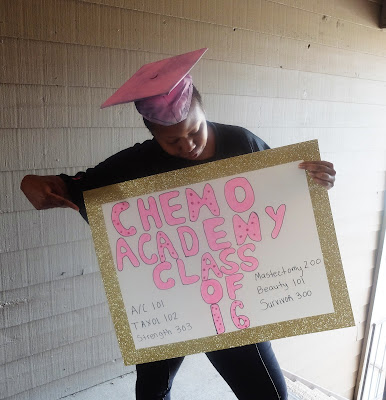 CHEMO
ACADEMY
CLASS
OF
16
A/C 101
TAXOL 102
Strength 303
Mastectomy 200
Beauty 101
Survivor 300